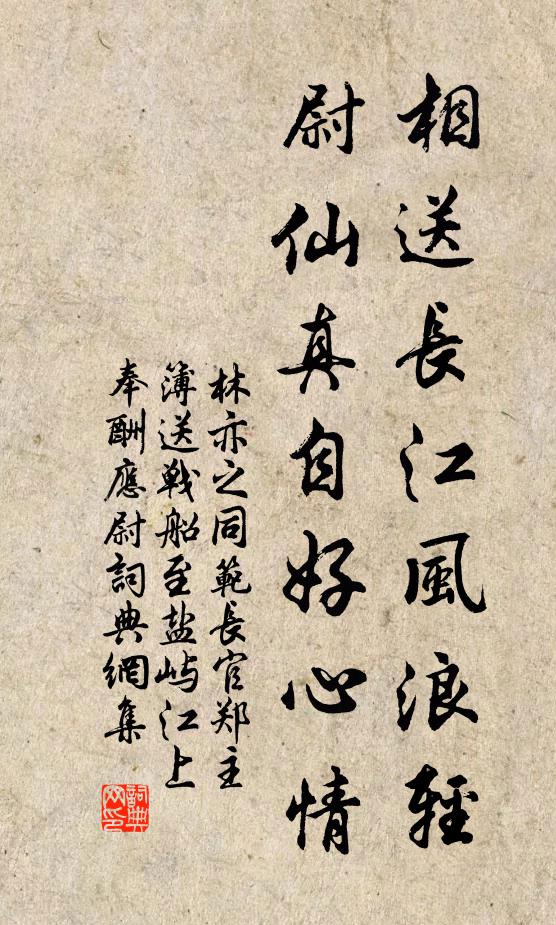 相送長江風浪輕
尉仙真自好心情
林亦之同範長官郑主
簿送戦船至盐屿江上
奉酬應尉詞典網集
詞典
网印